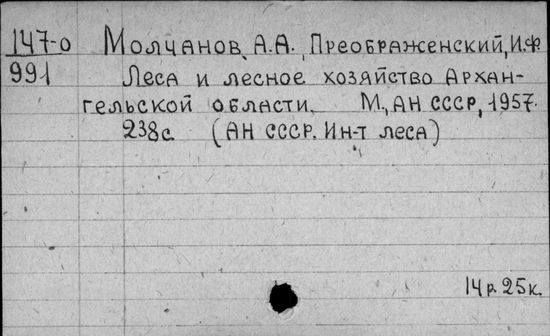 147-о Молчанов, А.А. Преображенский, И.Ф
991 Леса и лесное хозяйство Архан-
гельской области. М., АН СССР, 1957.
238с. (АН СССР. Ин-т леса)
14р. 25к.